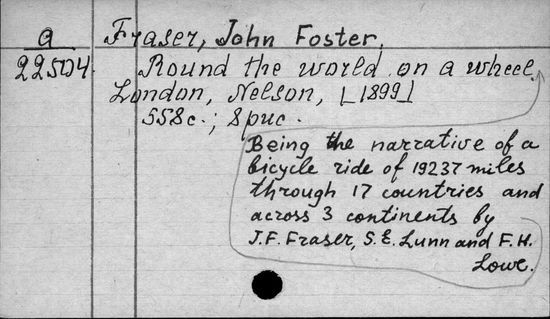 a
22504
Fraser, John Foster.
Round the world on a wheel.
London, Nelson, [1899]
558c.; 8рис.
Being the narrative of a
bicycle ride of 19237 miles
through 17 countries and
across 3 continents by
J.F. Fraser, S.E. Lunn and F.H.
Lowe.